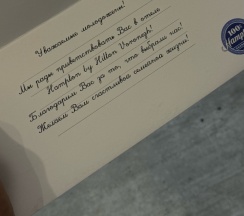 Уважаемые молодожёны!
Мы рады приветствовать Вас в отеле
Hampton by Hilton Voronezh!
Благодарим Вас за то, что выбрали нас!
Желаем Вам счастливой семейной жизни!
100%
Hampton